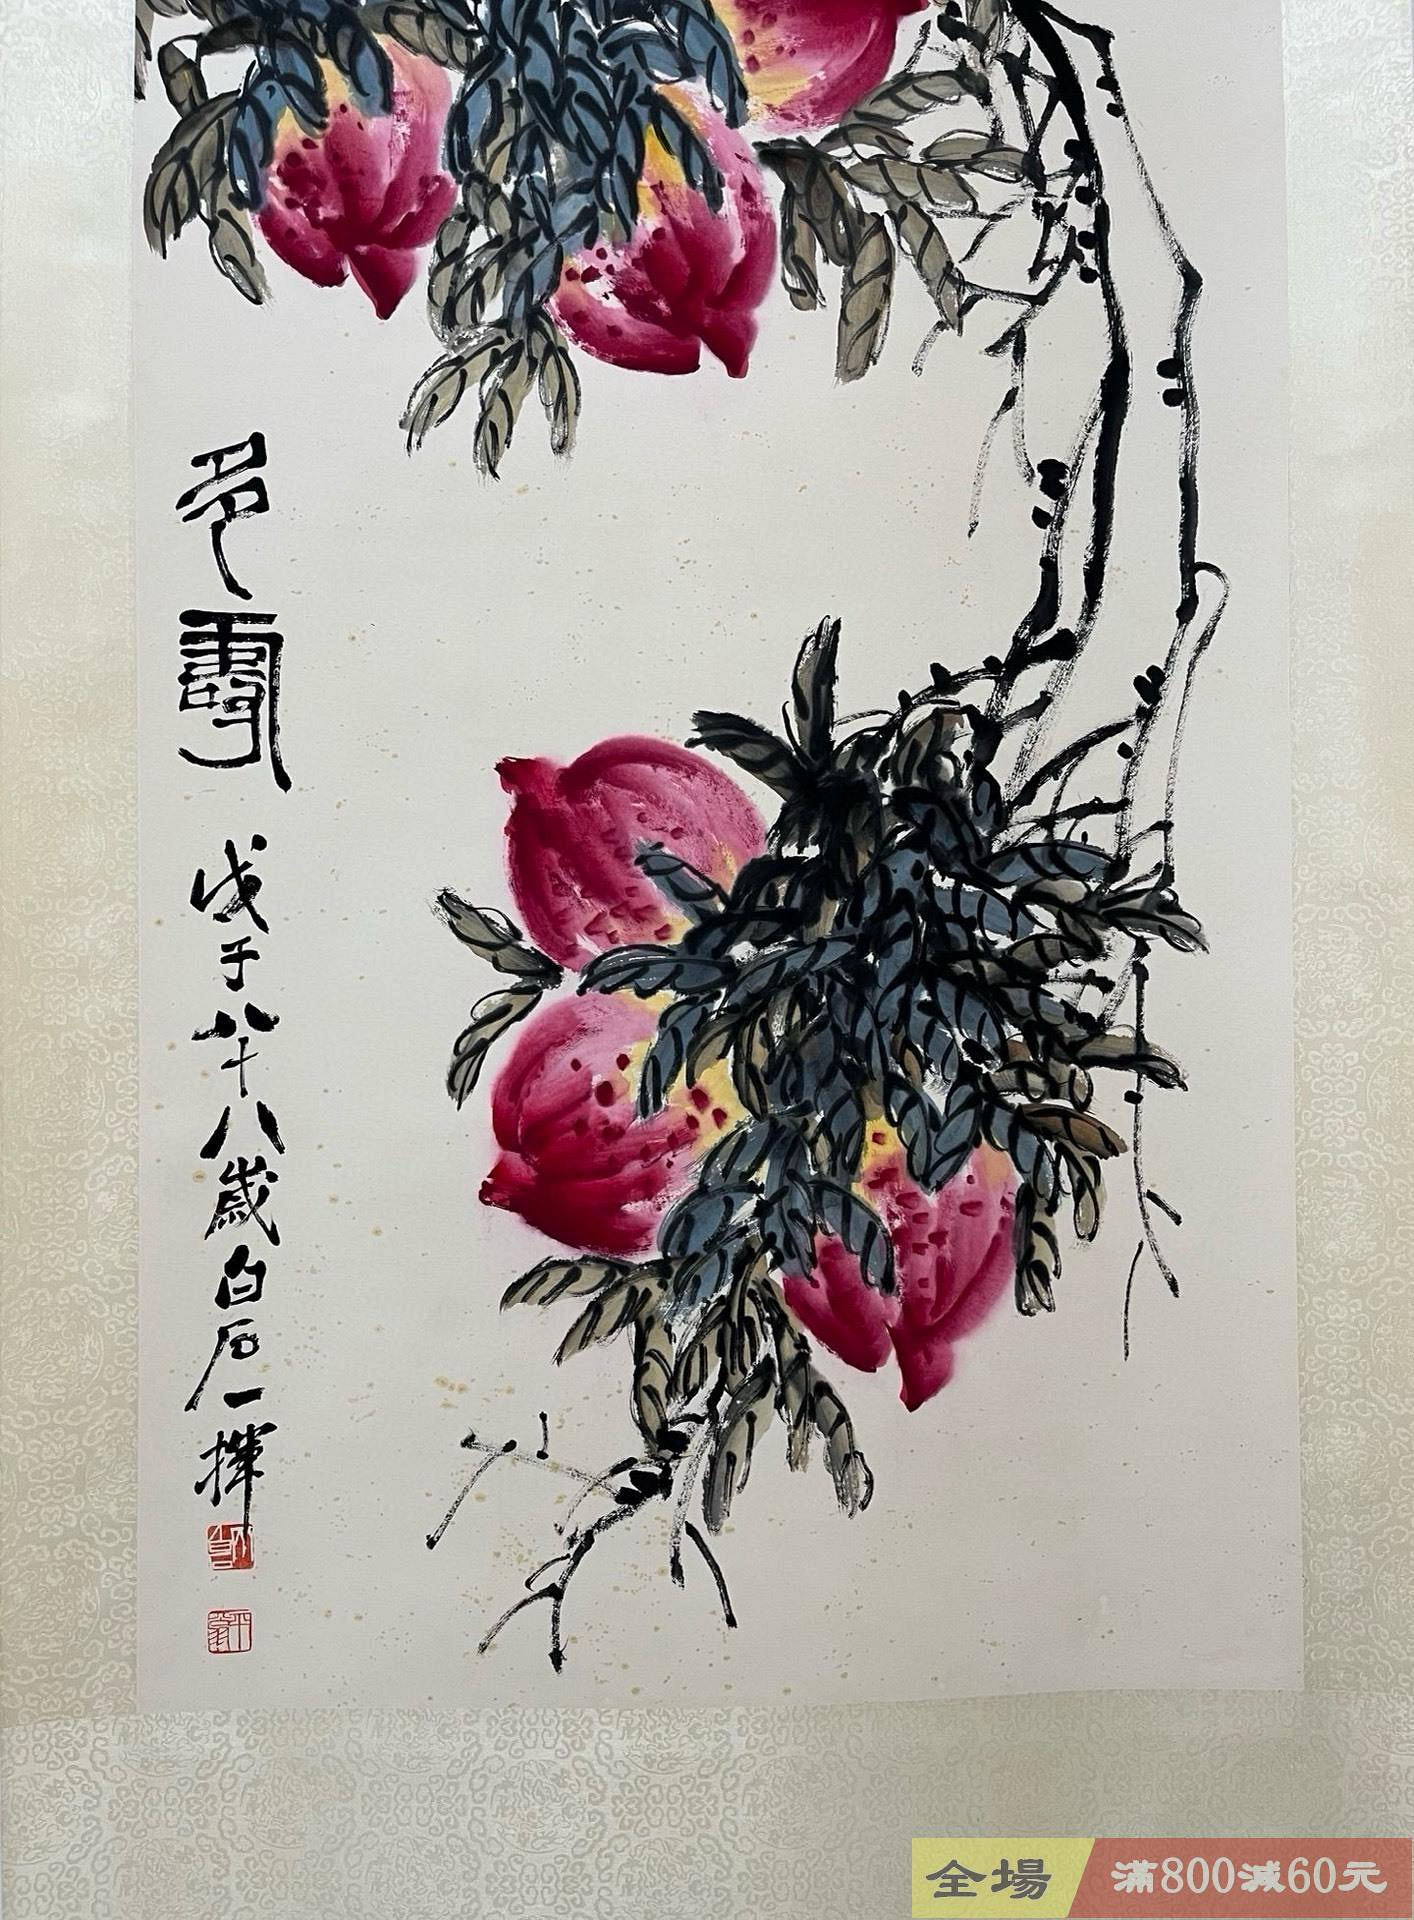 多壽
戊子八十八歲白石一揮
全場
滿800減60元